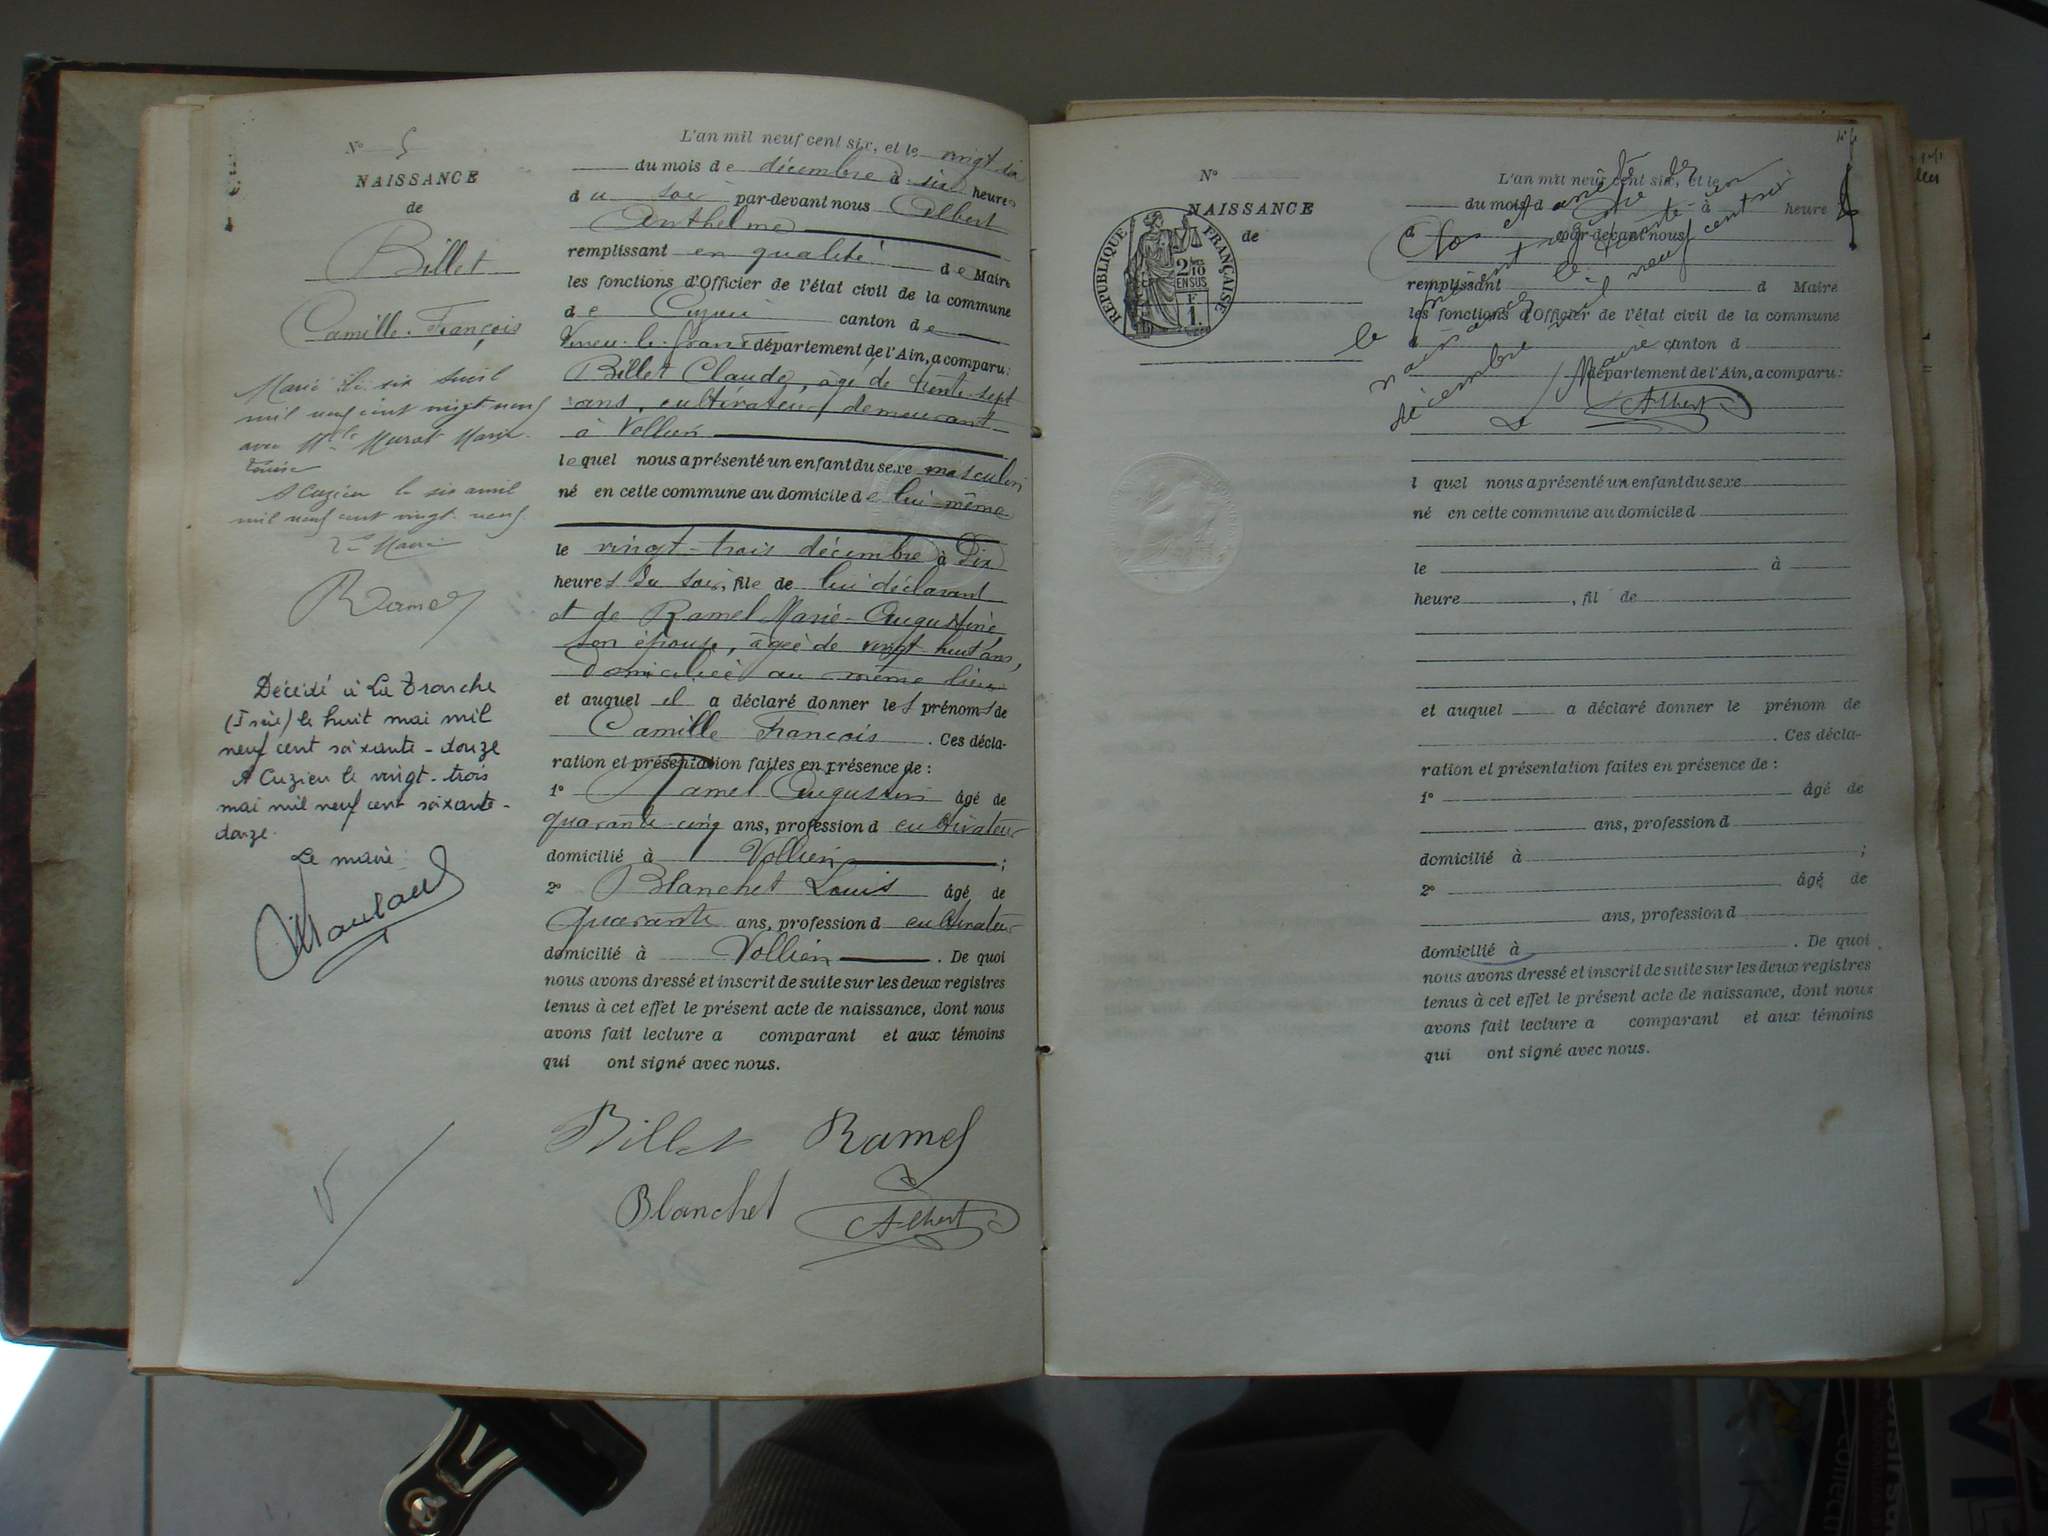 N° 5
NAISSANCE
de
Billet
Camille François
Marié le six avril
mil neuf cent vingt neuf
avec Mlle Murat Marie
Louise
A Cuzieu le six avril
mil neuf cent vingt neuf
Le Maire
Ramel
Décédé à La Tronche
(Isère) le huit mai mil
neuf cent soixante-douze
A Cuzieu le vingt-trois
mai mil neuf cent soixante-
douze.
Le maire
L'an mil neuf cent six, et le vingt six
du mois de décembre à six heures
du soir par-devant nous Albert
Anthelme
remplissant en qualité de Maire
les fonctions d'Officier de l'état civil de la commune
de Cuzieu canton de
Virieu-le-Grand département de l'Ain, a comparu:
Billet Claude, âgé de trente-sept
ans, cultivateur demeurant
à Vollien
lequel nous a présenté un enfant du sexe masculin
né en cette commune au domicile de lui-même
le vingt-trois décembre à Dix
heures du soir, fils de lui déclarant
et de Ramel Marie-Augustine
son épouse, âgée de vingt huit ans,
domiciliée au même lieu
et auquel il a déclaré donner les prénoms de
Camille François. Ces décla-
ration et présentation faites en présence de :
1° Ramel Augustin âgé de
quarante-cinq ans, profession d cultivateur
domicilié à Vollien ;
2° Blanchet Louis âgé de
quarante ans, profession d cultivateur
domicilié à Vollien. De quoi
nous avons dressé et inscrit de suite sur les deux registres
tenus à cet effet le présent acte de naissance, dont nous
avons fait lecture a comparant et aux témoins
qui ont signé avec nous.
Billet Ramel
Blanchet Albert
N°
NAISSANCE
de
RÉPUBLIQUE FRANÇAISE
2/10 EN SUS
F
1.
L'an mil neuf cent six, et le
du mois d à heure
d par-devant nous
remplissant d Maire
les fonctions d'Officier de l'état civil de la commune
d canton d
département de l'Ain, a comparu:
Clos et arrêté le
présent registre de
naissances le trente-un
décembre mil neuf cent six
Le Maire
Albert
l quel nous a présenté un enfant du sexe
né en cette commune au domicile d
le à
heure , fil de
et auquel a déclaré donner le prénom de
. Ces décla-
ration et présentation faites en présence de :
1° âgé de
ans, profession d
domicilié à ;
2° âgé de
ans, profession d
domicilié à . De quoi
nous avons dressé et inscrit de suite sur les deux registres
tenus à cet effet le présent acte de naissance, dont nous
avons fait lecture a comparant et aux témoins
qui ont signé avec nous.